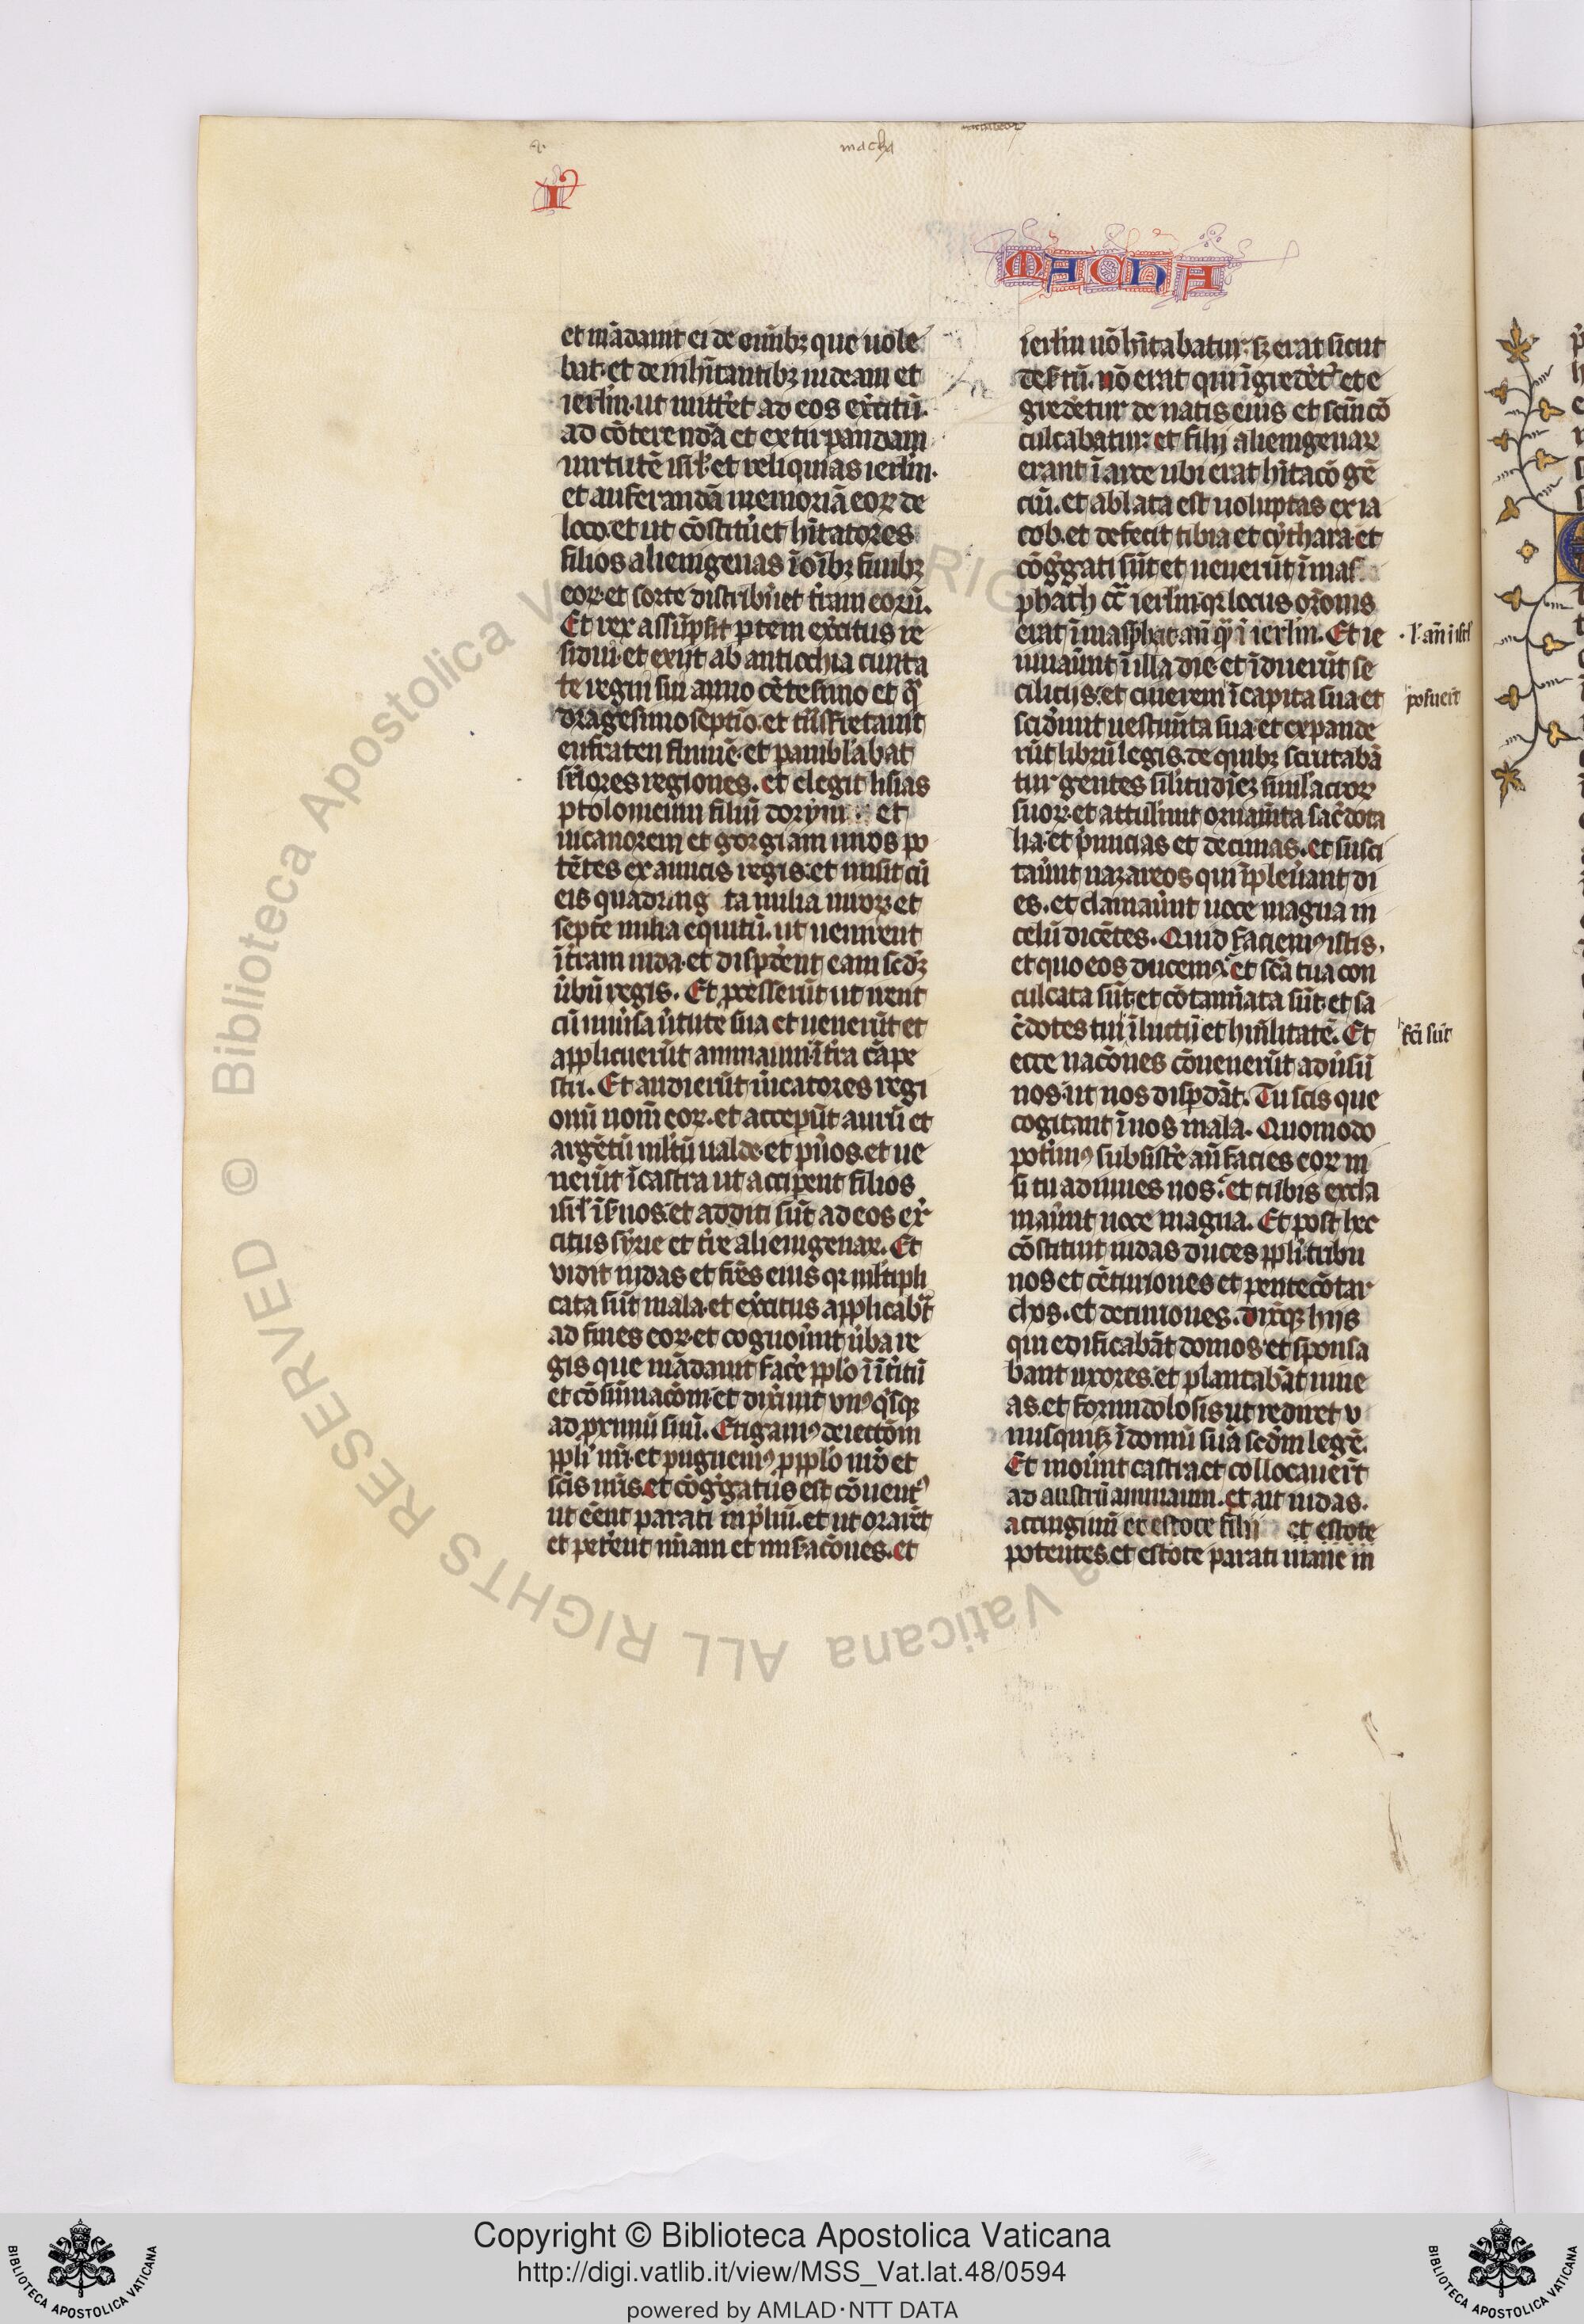 macha
I
MACHA
et mādauit ei de om̄ibꝫ que uole
bat. et de inhītantibꝫ iudeam et
ierl̄m. ut mitt̾et ad eos ex̾citū.
ad cōterendā et extirpandam
uirtutē isrl̾. et reliquias ierl̄m.
et auferandā memoriā eoꝝ de
loco. et ut cōstitu̾et hītatores
filios alienigenas ī oīb; finibꝫ
eoꝝ. et sorte distribu̾et t̾ram eoꝝ.
Et rex assūpsit ptem ex̾citus re
sidui. et exiit ab antiochia ciuita
te regni sui anno cētesimo et q̾
dragesimo septīo. et tn̄sfretauit
eufraten fluuiē. et pambl̾abat
sup̾iores regiones. et elegit lisias
ptolomeum filiū dorym et
nicanorem et gorgiam uiros po
tētes ex amicis regis. et misit cū
eis quadring ta milia uiroꝝ et
septē milia equitū. ut uenirent
ī t̾ram iuda. et disp̾dent eam scdꝫ
u̾bū regis. Et p̾cesserūt ut irent
cū uniu̾sa u̾tute sua et uenerūt et
applicuerūt ammaum. ī t̾ra cāpe
stri. Et audierūt m̾catores regi
onū nom̄ eoꝝ. et accep̾ūt aurū et
argētū ml̾tū ualde. et pu̾os. et ue
nerūt ī castra ut accip̾ent filios
isrl̾ ī s̾uos. et additi sūt ad eos ex̾
citus syrie et t̾re alienigenaꝝ. Et
vidit iudas et fr̄es eius qꝛ ml̾tipli
cata sūt mala. et ex̾citus applicab̾t
ad fines eoꝝ. et cognou̾unt u̾ba re
gis que mādauit fac̾e ppl̾o ī īt̾itū
et cōsūmacōm. et dix̾unt vnꝰ q̾sqꝫ
ad px̾imū suū. Erigamꝰ deiectōm
ppl̾i nr̄i. et pugnemꝰ p ppl̾o nr̄o et
scīs nr̄is. et cōg̾gatus est cōuentꝰ
ut ēēnt parati in p̾liū. et ut orarēt
et pet̾ent mīam et mis̾acōnes. et
ierl̄m nō hītabatur. sꝫ erat sicut
des̾tū. nō erat qui īgredet̾ et e
gred̾etur de natis eius et scm̄ cō
culcabatur. et filii alienigenaꝝ
erant ī arce ubi erat hītacō gē
ciū. et ablata est uoluptas ex ia
cob. et defecit tibia et cythara. et
cōg̾gati sūt et uenerūt ī mas
phath cͨ ierl̄m. qꝛ locus orōnis
erat ī masphat an̄ q̄ ī ierl̄m. Et ie
iunau̾unt ī illa die. et īduerūt se
ciliciis. et cinerem ī capita sua et
posuer̄t
scid̾unt uestim̄ta sua. et expande
rūt librū legis. de quibꝫ scrutabā
tur gentes sil̾itudīeꝫ simulacroꝝ
suoꝝ. et attul̾unt ornam̄ta sac̾dota
lia. et p̾micias et decimas. et susci
tau̾unt nazareos qui īpleu̾ant di
es. et clamau̾unt uoce magna in
celū dicētes. Quid faciemꝰ istis.
et quo eos ducemꝰ. et scā tua con
culcata sūt. et cōtam̄ata sūt. et sa
c̾dotes tui ī luctū et humilitatē. Et
fc̄i sūt
ecce nacōnes cōuenerūt adu̾sū
nos. ut nos disp̾dāt. Tu scis que
cogitant ī nos mala. Quomodo
pot̾imꝰ subsist̾e an̄ facies eoꝝ ni
si tu adiuues nos. et tubis excla
mau̾unt uoce magna. Et post hec
cōstituit iudas duces ppl̾i. tribu
nos et cēturiones et pentecōtar
chos. et decuriones. dixitqꝫ hiis
qui edificabāt domos. et sponsa
bant uxores. et plantabāt uine
as. et formidolosis ut rediret v
nusquisqꝫ ī domū suā scd̄m legē.
Et mou̾unt castra. et collocauer̄t
ad austrū ammaum. et ait iudas.
accingim̄ et estote filii et estote
potentes. et estote parati mane in
Copyright © Biblioteca Apostolica Vaticana
http://digi.vatlib.it/view/MSS_Vat.lat.48/0594
powered by AMLAD·NTT DATA
BIBLIOTECA APOSTOLICA VATICANA
BIBLIOTECA APOSTOLICA VATICANA
© Biblioteca Apostolica Vaticana ALL RIGHTS RESERVED